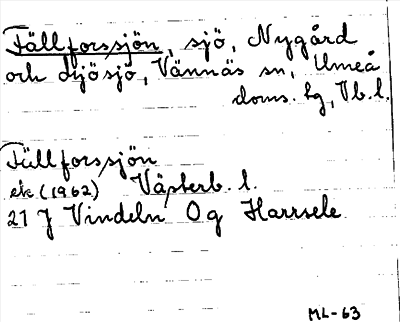 Fällforssjön, sjö, Nygård
och Lijösjö, Vännäs sn, Umeå
doms. lg, Vb. l.
Fällforssjön
ek (1962) Västerb. l.
21 J Vindeln Og Harrsele
ML-63